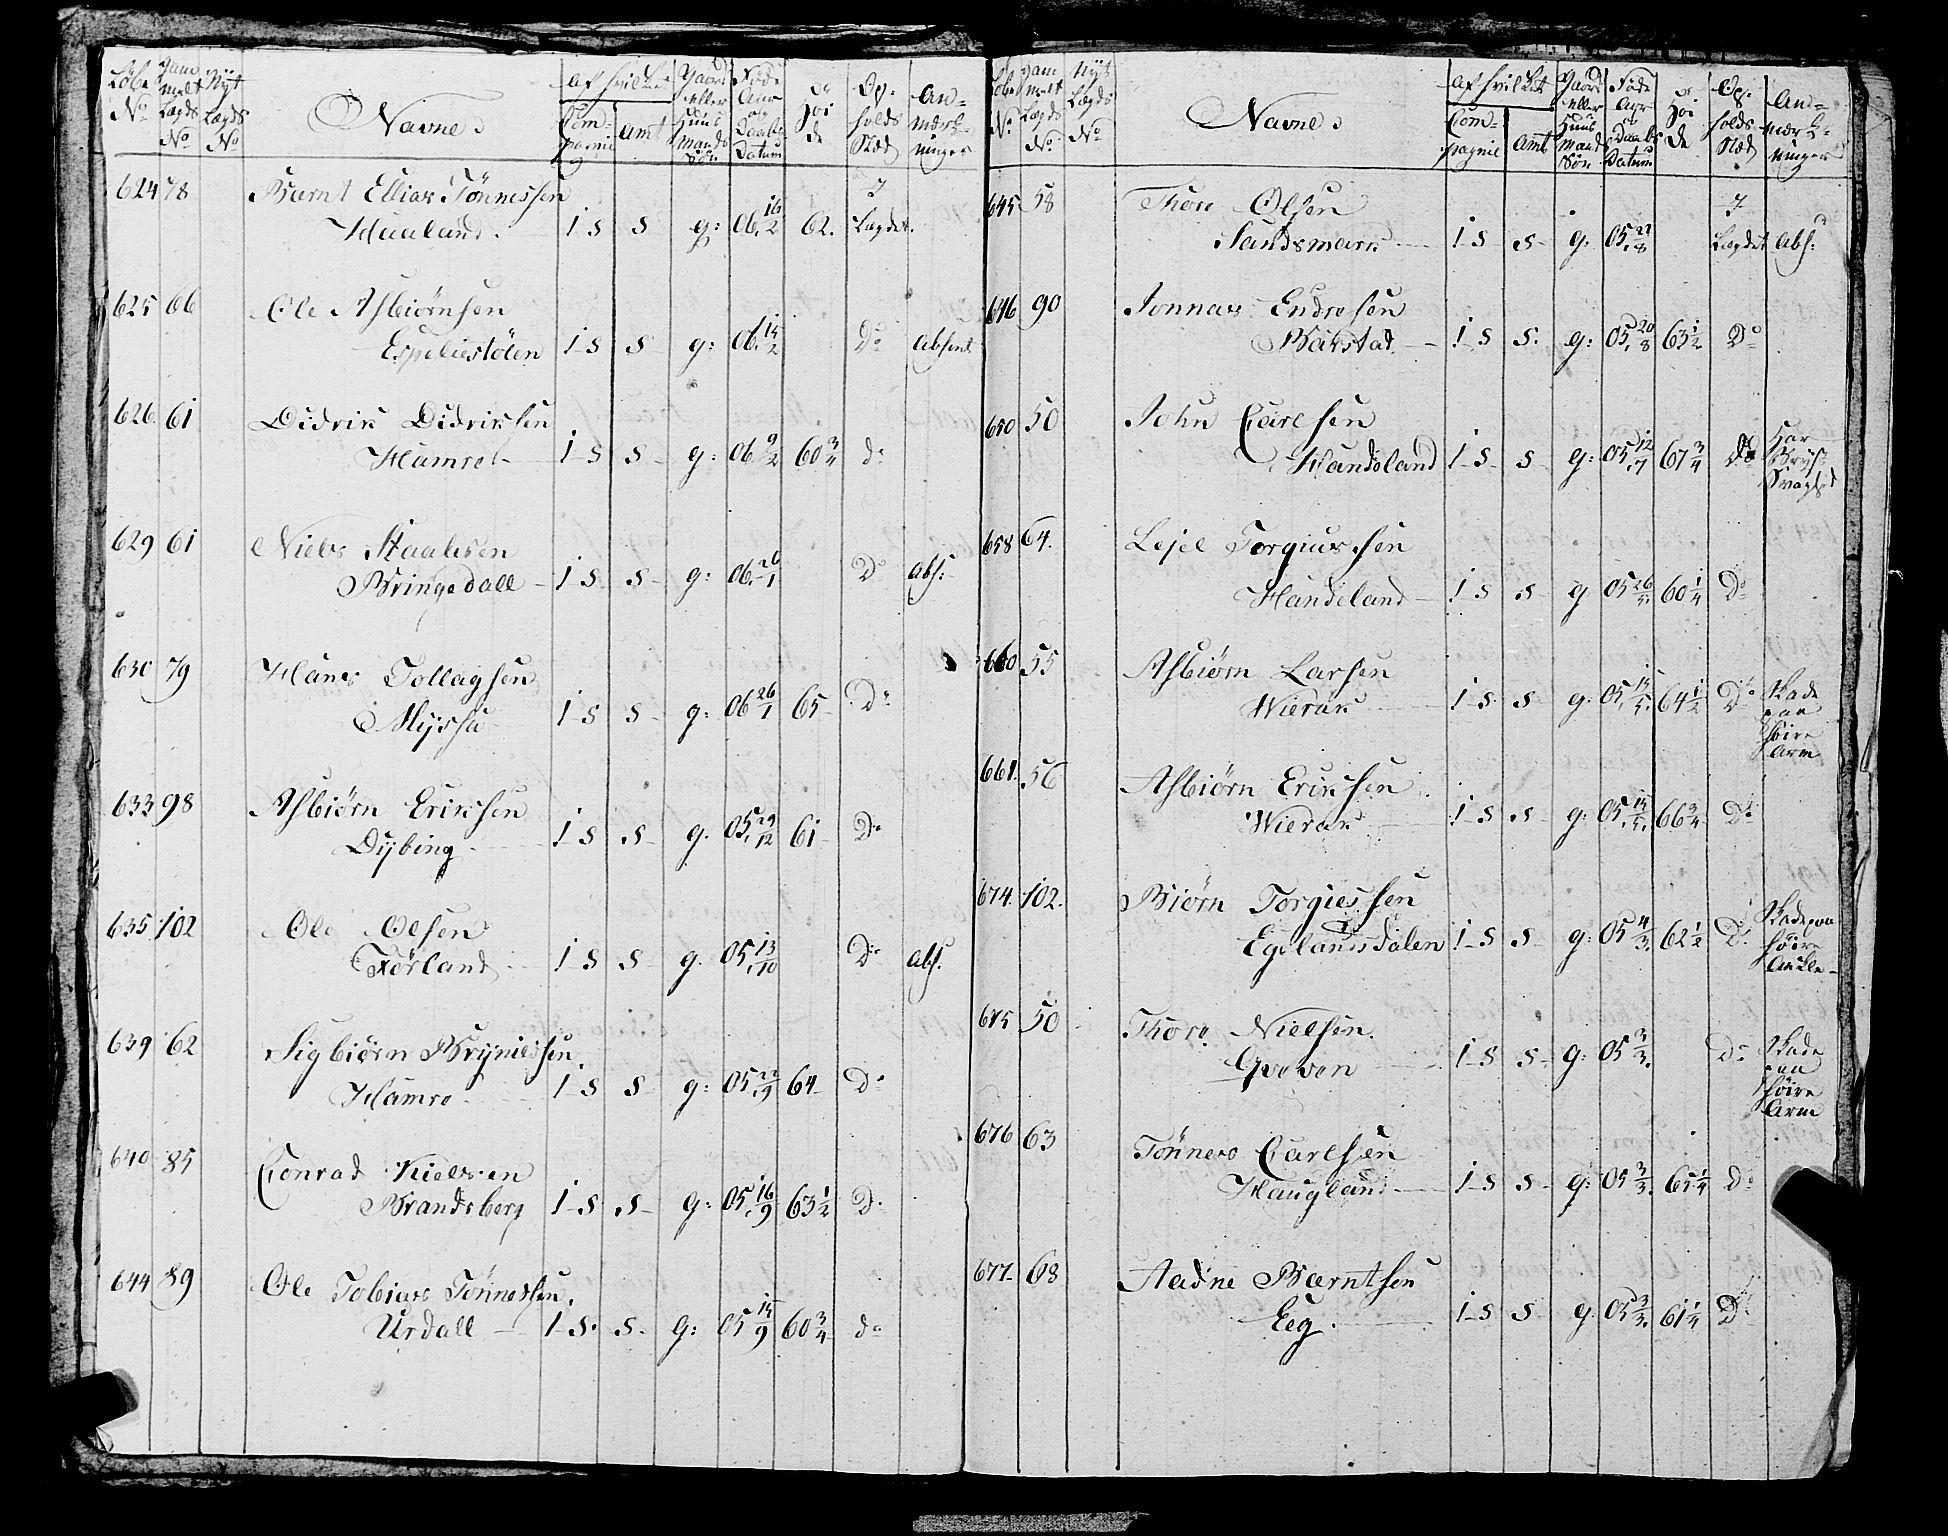 Løbe No
Gammelt Lægds No
Nyt Lægds No
Navne
Af hvilket
Compagnie
Amt
Gaard eller Huus Mands Søn
Føde Aar og Daabs Datum
Høide
Opholds Stæd
Anmærkninger
624 78 Bærnt Ellias Tönnessen I
Haaland. 1 S S g: 06. 16/2 62. Lægdet.
625 66 Ole Asbiørnsen
Espeliestölen 1 S S g: 06. 15/2 Do Absent
626 61 Didrik Didriksen
Hamre 1 S S g: 06 9/2 60 3/4 do
629 61 Niels Staalesen
Bringedall 1 S S g: 06. 26/1 Do Abs:
630 79 Hans Tollagsen
Myssa 1 S S g: 06 26/1 65 Do
633 98 Asbiørn Eriksen
Dybing 1 S S g. 05. 29/12 61 Do
635 102 Ole Olsen
Førland 1 S S g. 05. 13/10 Do Abs.
639 62 Sigbiørn Bryniessen
Hamre 1 S S g: 05. 22/9 64 Do
640 85 Conrad Nielsen
Brandsberg 1 S S g: 05. 16/9 63 1/2 Do
644 89 Ole Tobias Tönnessen.
Urdall 1 S. S. g: 05 15/9 60 3/4 do
Løbe No
Gammelt Lægds No
Nyt Lægds No
Navne
Af hvilket
Compagnie
Amt
Gaard eller Huus Mands Søn
Føde Aar og Daabs Datum
Høide
Opholds Stæd
Anmærkninger
645 58 Thore Olsen I
Sandsmark 1 S S g: 05. 27/8 Lægdet Abs:
646 90 Jonnas Endresen
Bakstad 1 S S. g: 05. 20/8 63 1/2 Do
650 50 John Carlsen Har
Handeland 1 S S g: 05. 12/7 67 3/4 Do Bryst
Svaghed
658 64. Lejel Torgiussen
Handeland 1 S S g 05 26/5. 60 1/4 Do
660 55 Asbiørn Larsen
Wierak 1 S S g. 05. 15/5. 64 1/2 Do Skade
paa
høire
Arm
661. 56 Asbiørn Eriksen
Wierak 1 S S g: 05. 15/5. 66 3/4 Do
674. 102. Biørn Torgiessen
Egelandsdalen 1 S S g: 05 4/3. 62 1/2 Do Skade paa
høire
Ankle
675 50 Thore Nielsen
1 S S g: 05 3/3. Do Skade
paa
høire
Arm
676 63 Tönnes Carlsen
Haugland 1 S S g: 05 3/3. 65 1/4 do
677. 68 Aadne Bærntsen
Eeg. 1 S S g. 05 3/3. 61 1/4 Do